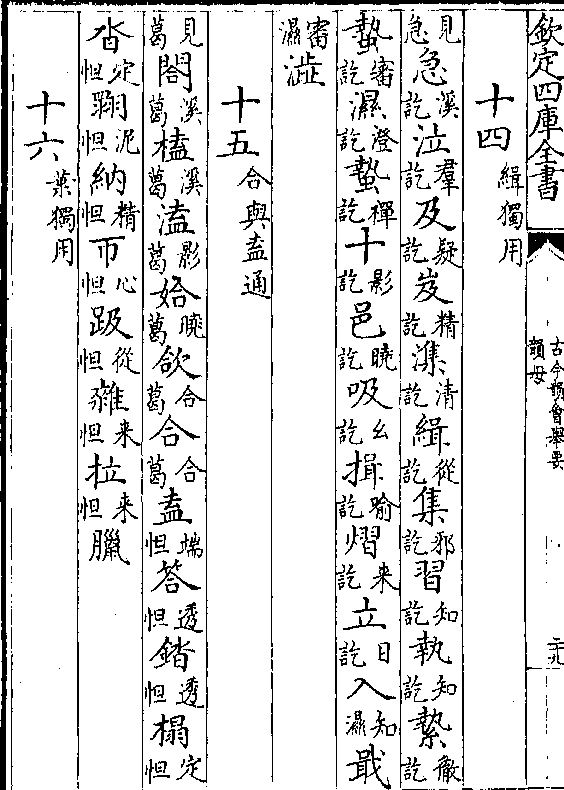 欽定四庫全書
古今韻會舉要
韻母
二十九
十四 緝獨用
見急急溪訖泣羣訖及疑訖岌精訖湒清訖緝從訖集邪訖習知訖執知訖縶徹訖
蟄審訖濕澄訖蟄禪訖十影訖邑曉訖吸幺訖揖喻訖熠来訖立日訖入知濕戢
審濕澁
十五 合與盍通
見葛閤溪葛榼溪葛溘影葛姶曉葛欱合葛合合葛盍端怛答透怛錔透怛榻定怛
沓定怛䎳泥怛納精怛帀心怛趿從怛雜来怛拉来怛臘
十六 葉獨用